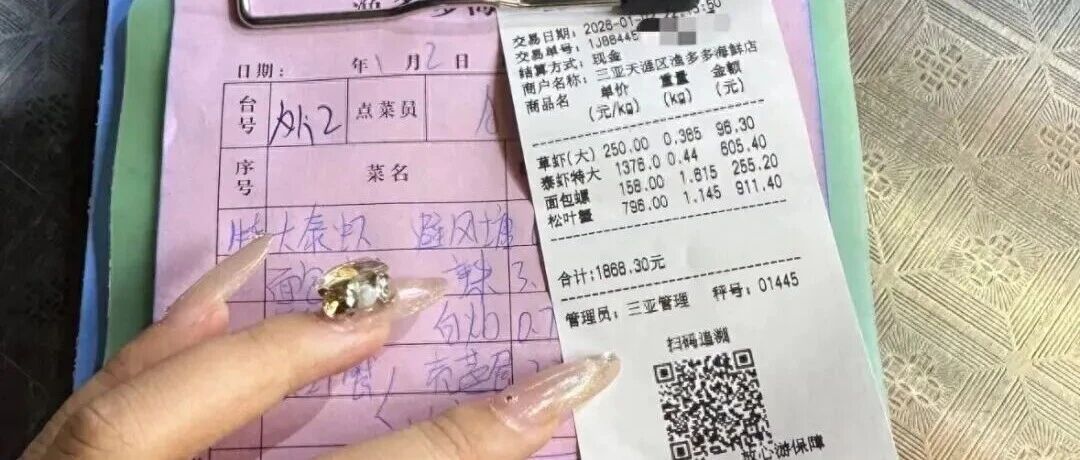 日期: 年 1 月 2 日
台号 外12 点菜员
序号 菜名
特大泰虾 避风塘
面 辣 3.
白灼 0.7
交易日期: 2026-01-
交易单号: 1J88445
结算方式: 现金
商户名称: 三亚天涯区渔多多海鲜店
商品名 单价 重量 金额
(元/kg) (kg) (元)
草虾(大) 250.00 0.385 96.30
泰虾特大 1376.0 0.44 605.40
面包螺 158.00 1.615 255.20
松叶蟹 796.00 1.145 911.40
合计:1868.30元
管理员: 三亚管理 秤号: 01445
扫码追溯
放心游保障